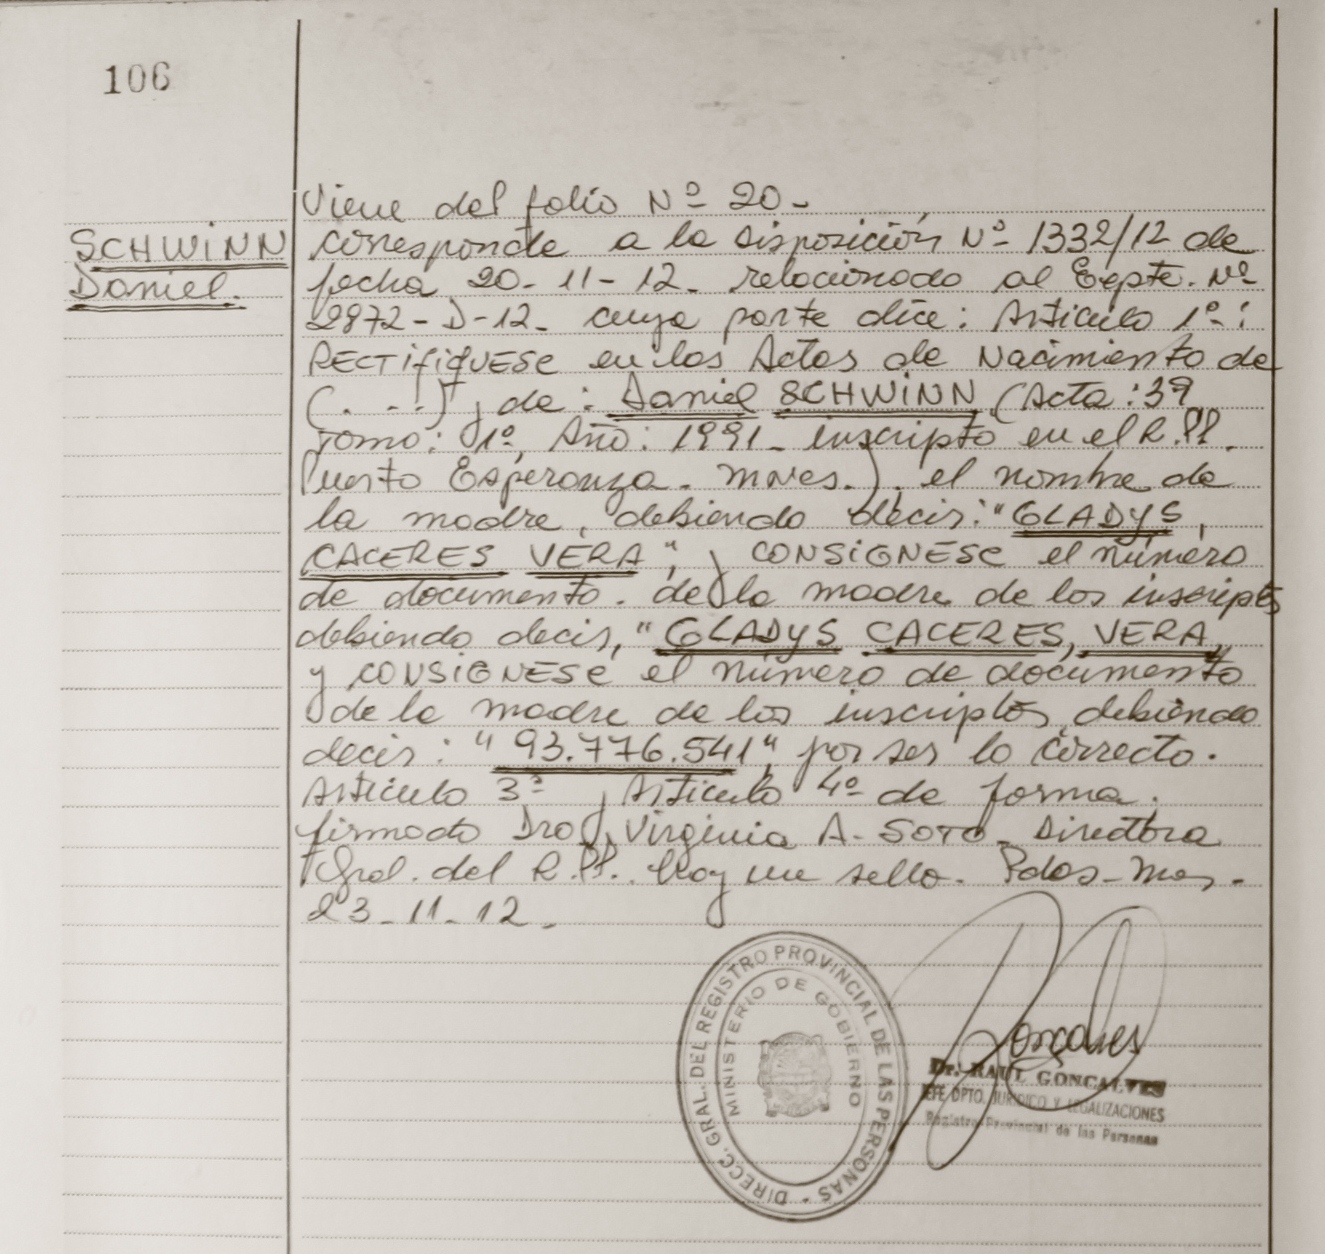 106
SCHWINN
Daniel.
Viene del folio Nº 20-
corresponde a la disposición Nº 1332/12 de
fecha 20-11-12. relacionado al Expte. Nº
2972-D-12- cuya parte dice: Artículo 1º:
RECTIFIQUESE en las Actas de Nacimiento de
(. . .) y de: Daniel SCHWINN (Acta: 39
Tomo: 1º, Año: 1991- inscripto en el R.PP.
Puerto Esperanza. Mnes.). el nombre de
la madre, debiendo decir: "GLADYS,
CACERES VERA", y CONSIGNESE el número
de documento. de la madre de los inscriptos
debiendo decir, "GLADYS CACERES, VERA,
y CONSIGNESE el número de documento
de la madre de los inscriptos, debiendo
decir: "93.776.541" por ser lo correcto.
Artículo 3º y Artículo 4º de forma.
firmado Dra. Virginia A. SOTO- Directora
Gral. del R.PP. Hay un sello- Pdas-Mnes-
23-11-12-
DIRECC. GRAL. DEL REGISTRO PROVINCIAL DE LAS PERSONAS
MINISTERIO DE GOBIERNO
Goncalves
Dr. RAUL GONCALVES
JEFE DPTO. JURIDICO Y LEGALIZACIONES
Registro Provincial de las Personas